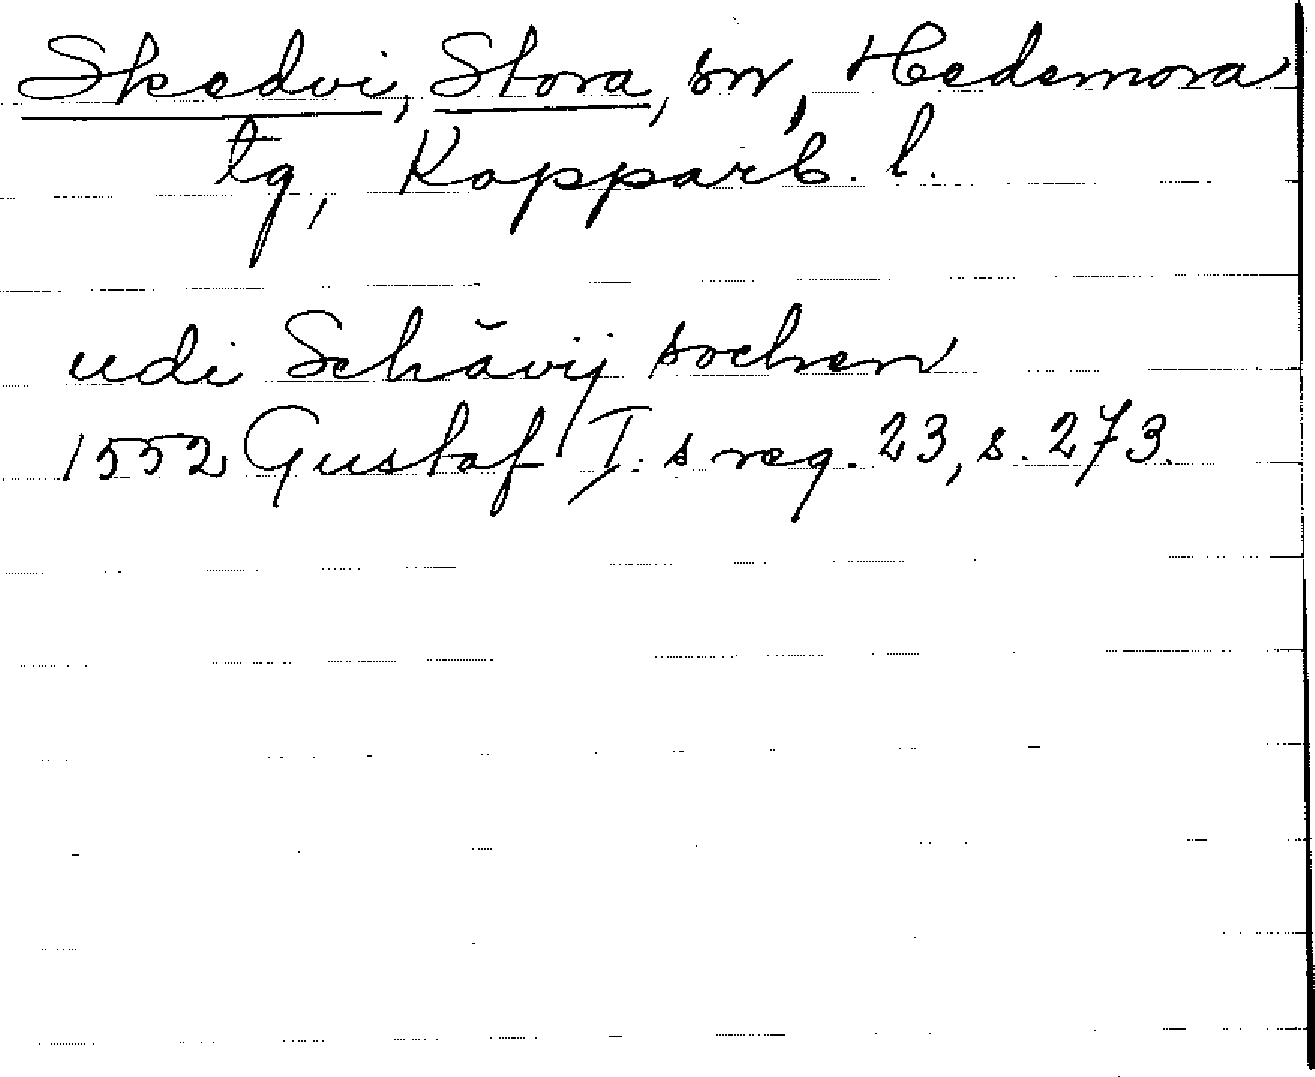 Skedvi, Stora, sn, Hedemora
tg, Kopparb. l.
udi Schåvij sochen
1552 Gustaf I:s reg. 23, s. 273.